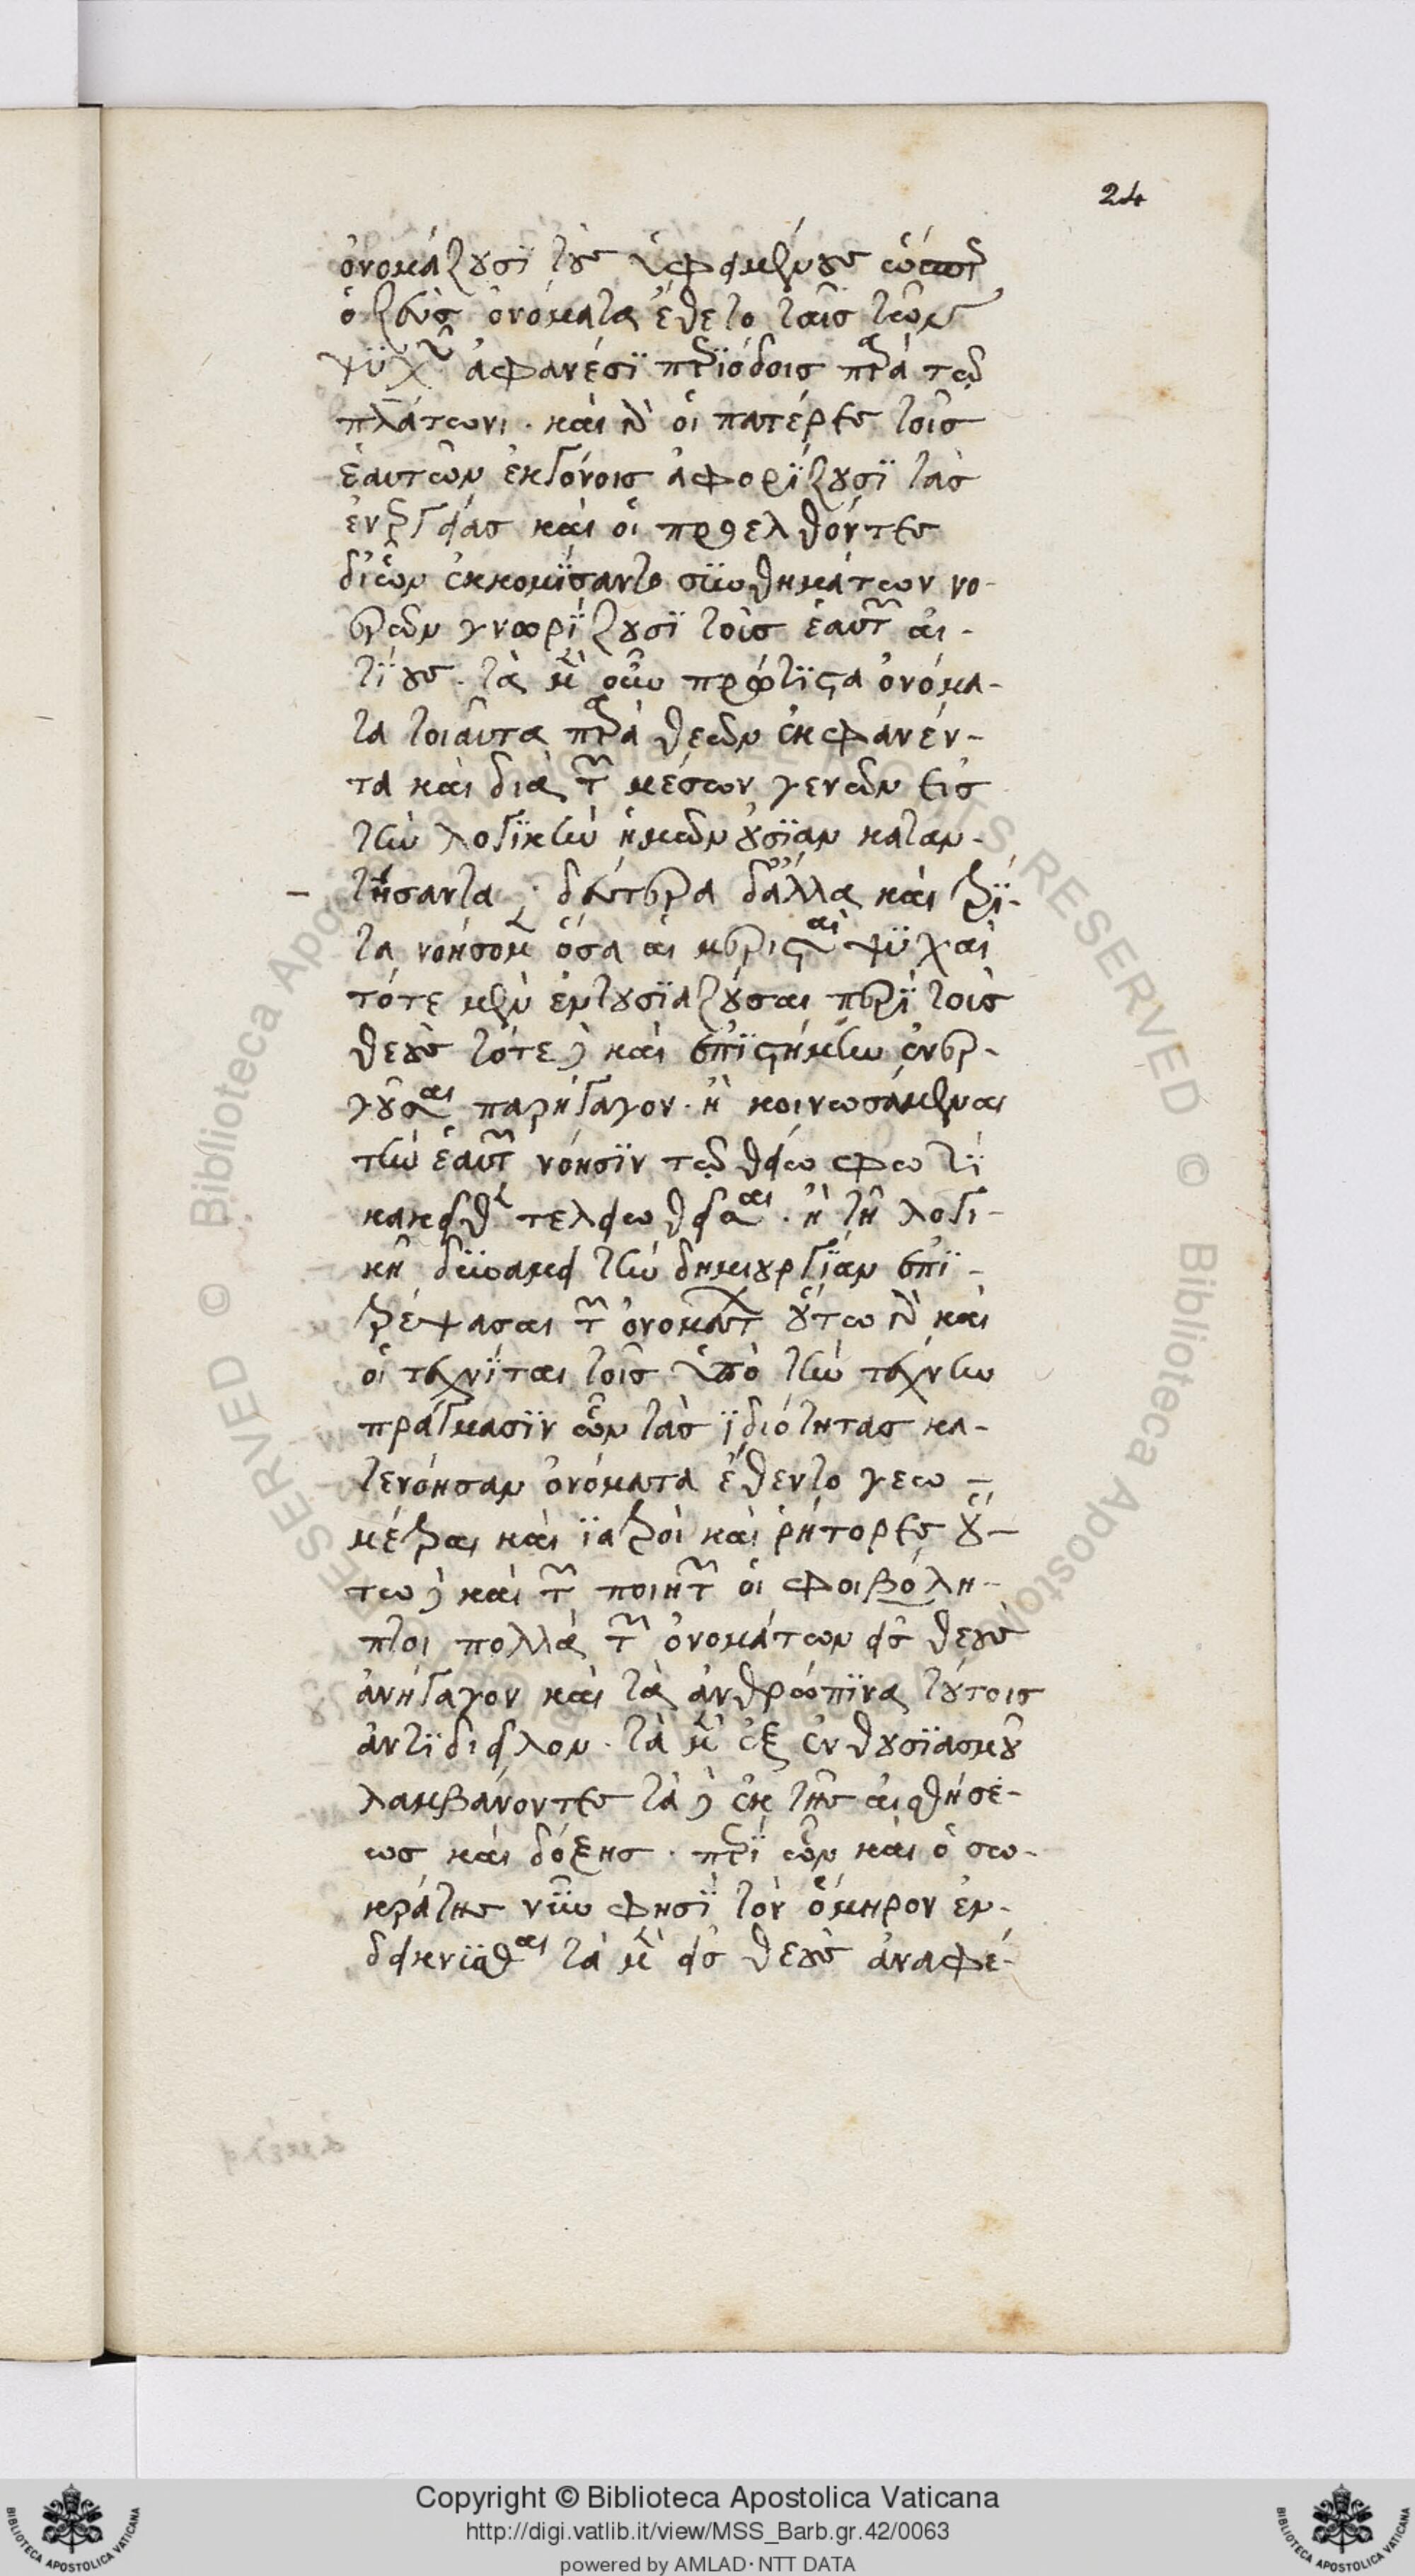 24
ὀνομάζουσι τοὺς ὑφειμένους ὥσπερ
ὁ ζεὺς ὀνόματα ἔθετο ταῖς τῶν
ψυχῶν ἀφανέσι περιόδοις παρὰ τῷ
πλάτωνι. καὶ γὰρ οἱ πατέρες τοῖς
ἑαυτῶν ἐκγόνοις ἀφορίζουσι τὰς
ἐνεργείας καὶ οἱ προελθόντες
δι' ὧν ἐκκομίσαντο συνθημάτων νο-
ερῶν γνωρίζουσι τοὺς ἑαυτῶν αἰ-
τίους. τὰ μὲν οὖν πρώτιστα ὀνόμα-
τα τοιαῦτα παρὰ θεῶν ἐκφανέν-
τα καὶ διὰ τῶν μέσων γενῶν εἰς
τὴν λογικὴν ἡμῶν οὐσίαν καταν-
τήσαντα. δεύτερα δ' ἄλλα καὶ τρί-
τα νοήσομεν ὅσα αἱ μερισταὶ ψυχαὶ
τότε μὲν ἐνθουσιάζουσαι περὶ τοὺς
θεοὺς τότε δὲ καὶ ἐπιστήμην ἐνερ-
γοῦσαι παρήγαγον. ἢ κοινωσάμεναι
τὴν ἑαυτῶν νόησιν τῷ θείῳ φωτὶ
κακεῖθεν τελειωθεῖσαι. ἢ τῇ λογι-
κῇ δυνάμει τὴν δημιουργίαν ἐπι-
τρέψασαι τῶν ὀνομάτων οὕτω γὰρ καὶ
οἱ τεχνῖται τοῖς ὑπὸ τὴν τέχνην
πράγμασιν ὧν τὰς ἰδιότητας κα-
τενόησαν ὀνόματα ἔθεντο γεω-
μέτραι καὶ ἰατροὶ καὶ ῥήτορες οὕ-
τω δὲ καὶ τῶν ποιητῶν οἱ φοιβόλη-
πτοι πολλὰ τῶν ὀνομάτων εἰς θεοὺς
ἀνήγαγον καὶ τὰ ἀνθρώπινα τούτοις
ἀντιδιεῖλον. τὰ μὲν ἐξ ἐνθουσιασμοῦ
λαμβάνοντες τὰ δὲ ἐκ τῆς αἰσθήσε-
ως καὶ δόξης. περὶ ὧν καὶ ὁ σω-
κράτης νῦν φησὶ τὸν ὅμηρον ἐν-
δείκνυσθαι τὰ μὲν εἰς θεοὺς ἀναφέ-
Copyright © Biblioteca Apostolica Vaticana
http://digi.vatlib.it/view/MSS_Barb.gr.42/0063
powered by AMLAD·NTT DATA